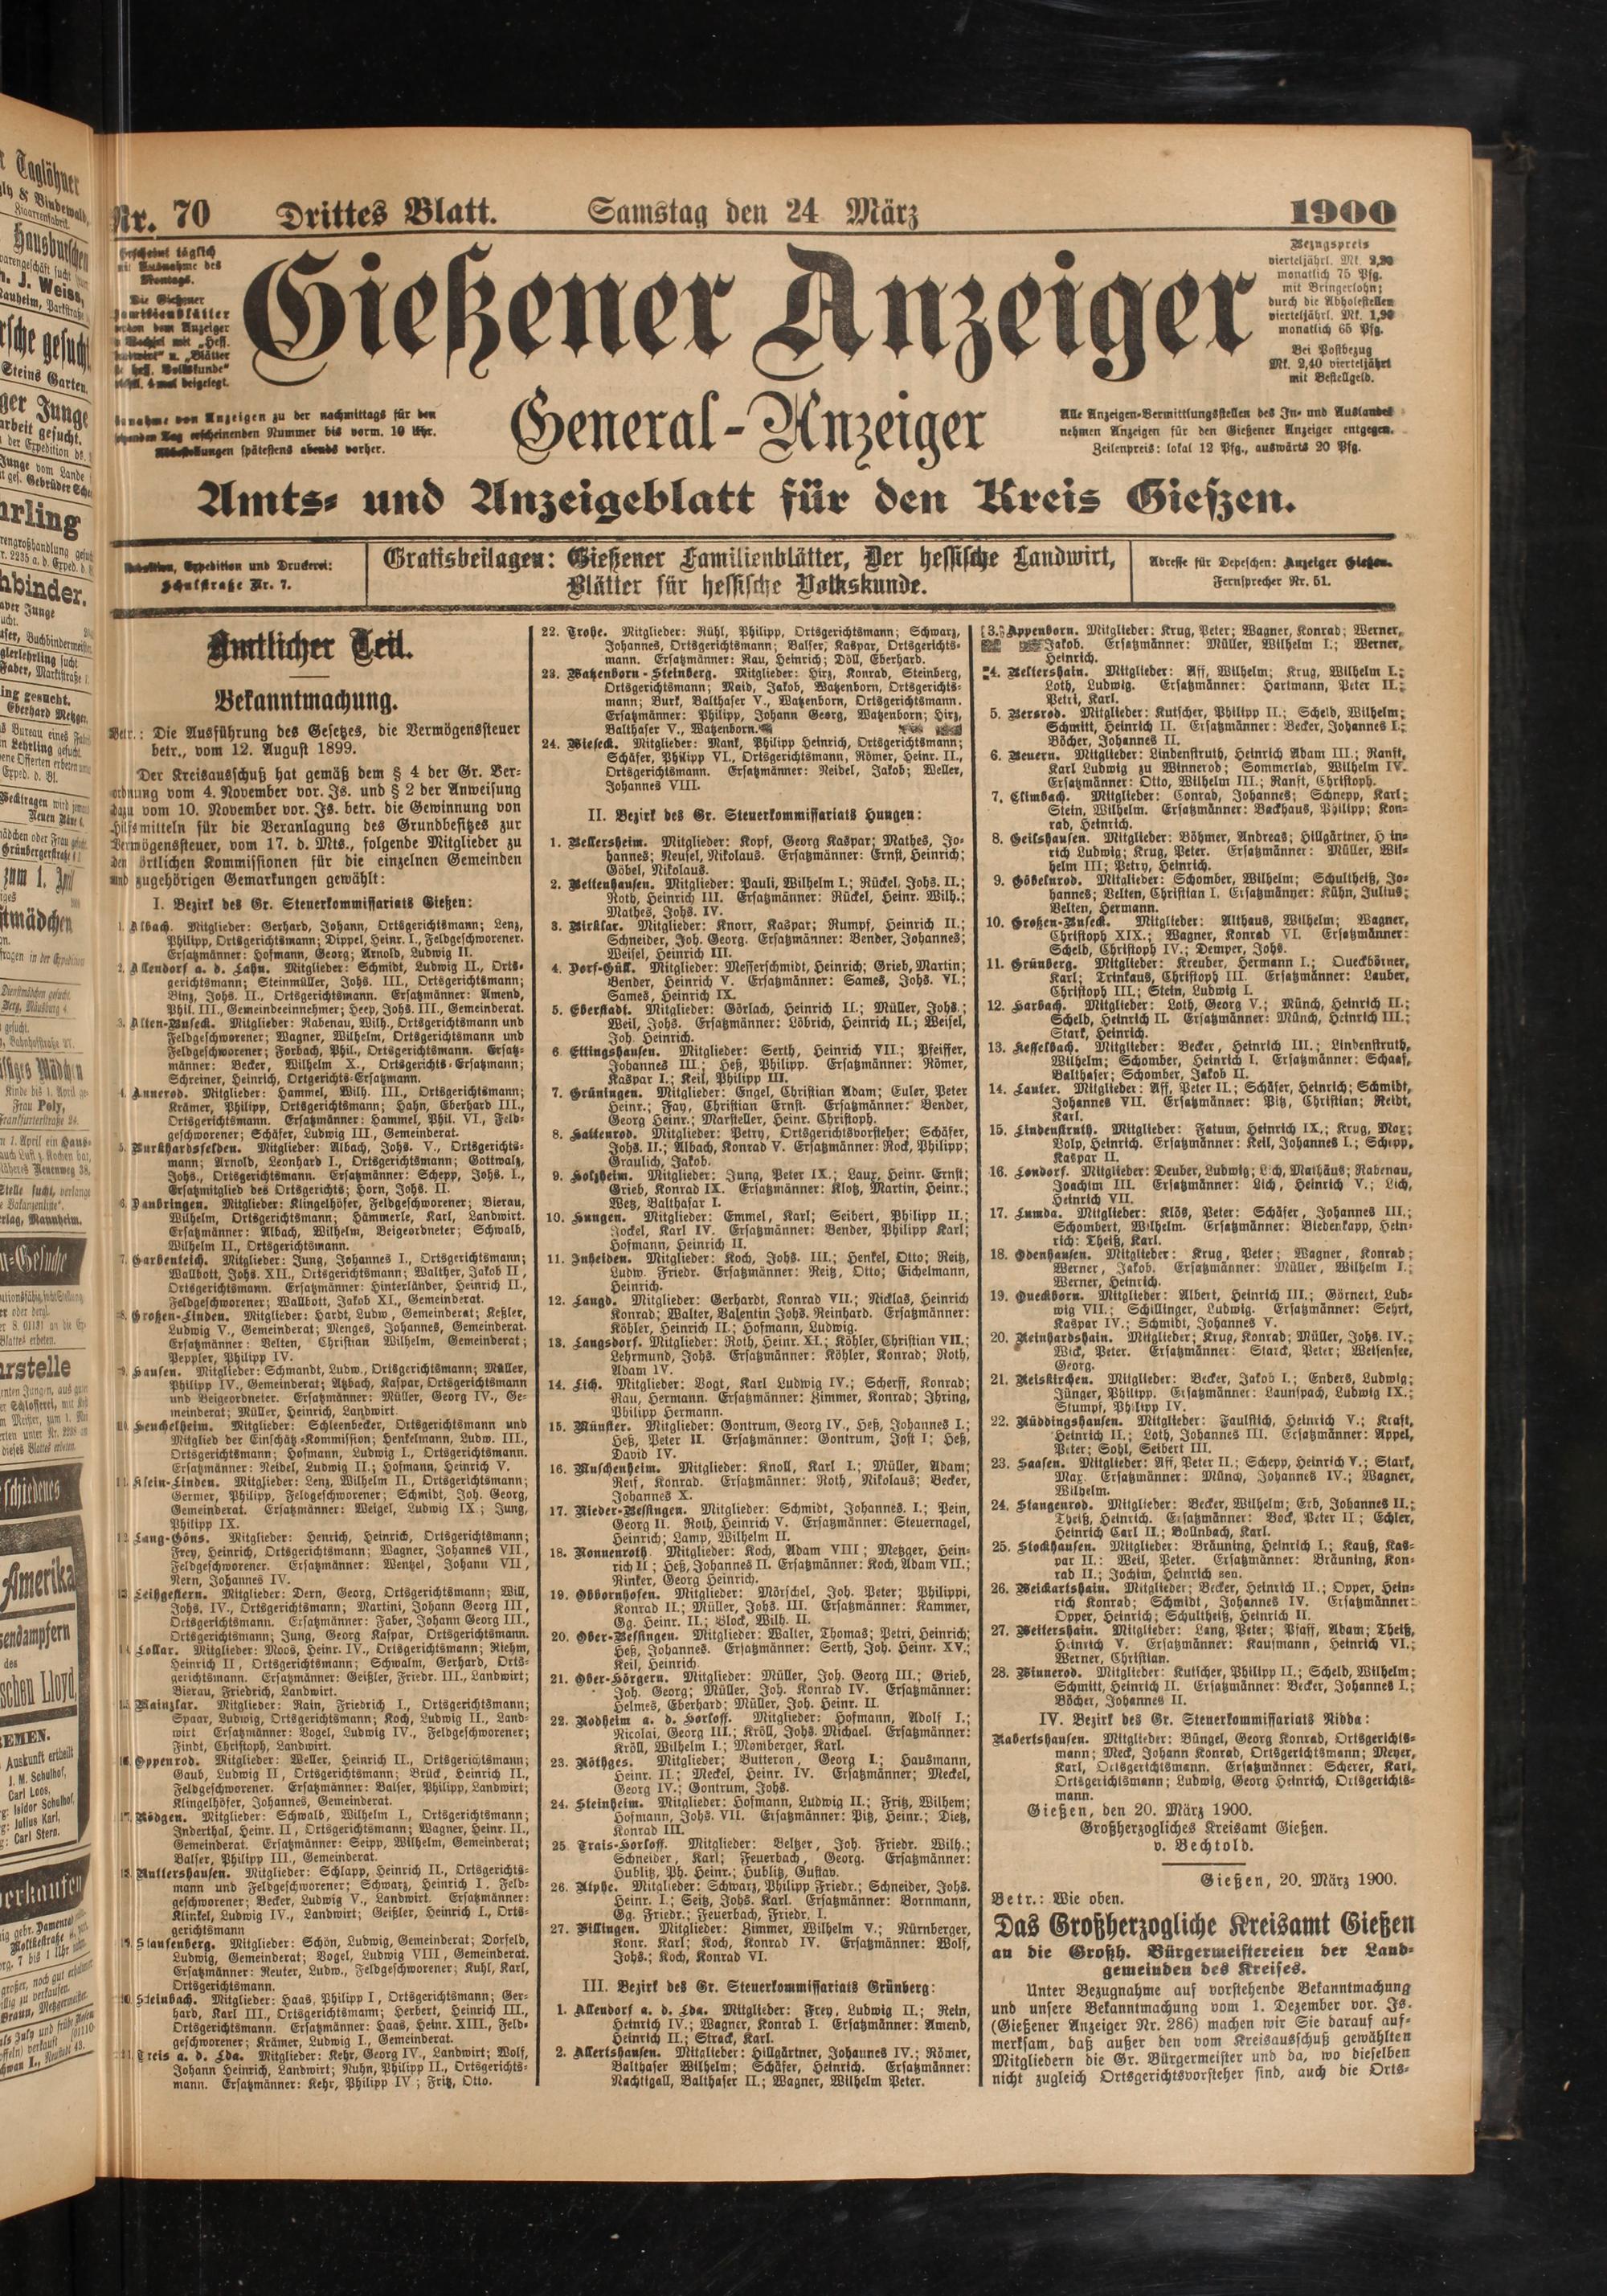 Nr. 70 Drittes Blatt. Samstag den 24 März 1900
Erscheint täglich
mit Ausnahme des
Montags.
Die Gießener
Familienblätter
werden dem Anzeiger
Gießener Anzeiger
Bezugspreis
vierteljährl. Mk. 2,20
monatlich 75 Pfg.
mit Bringerlohn;
durch die Abholestellen
vierteljährl. Mk. 1,90
monatlich 65 Pfg.
Bei Postbezug
Mk. 2,40 vierteljährl
mit Bestellgeld.
Annahme von Anzeigen zu der nachmittags für den
folgenden Tag erscheinenden Nummer bis vorm. 10 Uhr.
Abbestellungen spätestens abends vorher.
General-Anzeiger
Alle Anzeigen-Vermittlungsstellen des In- und Auslandes
nehmen Anzeigen für den Gießener Anzeiger entgegen.
Zeilenpreis: lokal 12 Pfg., auswärts 20 Pfg.
Amts- und Anzeigeblatt für den Kreis Gießen.
Redaktion, Expedition und Druckerei:
Schulstraße Nr. 7.
Gratisbeilagen: Gießener Familienblätter, Der hessische Landwirt,
Blätter für hessische Volkskunde.
Adresse für Depeschen: Anzeiger Gießen.
Fernsprecher Nr. 51.
Amtlicher Teil.
Bekanntmachung.
Betr.: Die Ausführung des Gesetzes, die Vermögensteuer
betr., vom 12. August 1899.
Der Kreisausschuß hat gemäß dem § 4 der Gr. Ver-
ordnung vom 4. November vor. Js. und § 2 der Anweisung
dazu vom 10. November vor. Js. betr. die Gewinnung von
Hilfsmitteln für die Veranlagung des Grundbesitzes zur
Vermögenssteuer, vom 17. d. Mts., folgende Mitglieder zu
den örtlichen Kommissionen für die einzelnen Gemeinden
und zugehörigen Gemarkungen gewählt:
I. Bezirk des Gr. Steuerkommissariats Gießen:
1. Albach. Mitglieder: Gerhard, Johann, Ortsgerichtsmann; Lenz,
Philipp, Ortsgerichtsmann; Dippel, Heinr. I., Feldgeschworener.
Ersatzmänner: Hofmann, Georg; Arnold, Ludwig II.
2. Allendorf a. d. Lahn. Mitglieder: Schmidt, Ludwig II., Orts-
gerichtsmann; Steinmüller, Johs. III., Ortsgerichtsmann;
Binz, Johs. II., Ortsgerichtsmann. Ersatzmänner: Amend,
Phil. III., Gemeindeeinnehmer; Heep, Johs. III., Gemeinderat.
3. Alten-Buseck. Mitglieder: Rabenau, Wilh., Ortsgerichtsmann und
Feldgeschworener; Wagner, Wilhelm, Ortsgerichtsmann und
Feldgeschworener; Forbach, Phil., Ortsgerichtsmann. Ersatz-
männer: Becker, Wilhelm X., Ortsgerichts-Ersatzmann;
Schreiner, Heinrich, Ortgerichts-Ersatzmann.
4. Annerod. Mitglieder: Hammel, Wilh. III., Ortsgerichtsmann;
Krämer, Philipp, Ortsgerichtsmann; Hahn, Eberhard III.,
Ortsgerichtsmann. Ersatzmänner: Hammel, Phil. VI., Feld-
geschworener; Schäfer, Ludwig III., Gemeinderat.
5. Burkhardsfelden. Mitglieder: Albach, Johs. V., Ortsgerichts-
mann; Arnold, Leonhard I., Ortsgerichtsmann; Gottwalz,
Johs., Ortsgerichtsmann. Ersatzmänner: Schepp, Johs. I.,
Ersatzmitglied des Ortsgerichts; Horn, Johs. II.
6. Daubringen. Mitglieder: Klingelhöfer, Feldgeschworener; Bierau,
Wilhelm, Ortsgerichtsmann; Hämmerle, Karl, Landwirt.
Ersatzmänner: Albach, Wilhelm, Beigeordneter; Schwalb,
Wilhelm II., Ortsgerichtsmann.
7. Garbenteich. Mitglieder: Jung, Johannes I., Ortsgerichtsmann;
Wallbott, Johs. XII., Ortsgerichtsmann; Walther, Jakob II,
Ortsgerichtsmann. Ersatzmänner: Hinterländer, Heinrich II.,
Feldgeschworener; Wallbott, Jakob XI., Gemeinderat.
8. Großen-Linden. Mitglieder: Hardt, Ludw, Gemeinderat; Keßler,
Ludwig V., Gemeinderat; Menges, Johannes, Gemeinderat.
Ersatzmänner: Velten, Christian Wilhelm, Gemeinderat;
Peppler, Philipp IV.
9. Hausen. Mitglieder: Schmandt, Ludw., Ortsgerichtsmann; Müller,
Philipp IV., Gemeinderat; Atzbach, Kaspar, Ortsgerichtsmann
und Beigeordneter. Ersatzmänner: Müller, Georg IV., Ge-
meinderat; Müller, Heinrich, Landwirt.
10. Heuchelheim. Mitglieder: Schleenbecker, Ortsgerichtsmann und
Mitglied der Einschätz-Kommission; Henkelmann, Ludw. III.,
Ortsgerichtsmann; Hofmann, Ludwig I., Ortsgerichtsmann.
Ersatzmänner: Reidel, Ludwig II.; Hofmann, Heinrich V.
11. Klein-Linden. Mitglieder: Lenz, Wilhelm II., Ortsgerichtsmann;
Germer, Philipp, Feldgeschworener; Schmidt, Joh. Georg,
Gemeinderat. Ersatzmänner: Weigel, Ludwig IX.; Jung,
Philipp IX.
12. Lang-Göns. Mitglieder: Henrich, Heinrich, Ortsgerichtsmann;
Frey, Heinrich, Ortsgerichtsmann; Wagner, Johannes VII,
Feldgeschworener. Ersatzmänner: Wentzel, Johann VII,
Nern, Johannes IV.
13. Leihgestern. Mitglieder: Dern, Georg, Ortsgerichtsmann; Will,
Johs. IV., Ortsgerichtsmann; Martini, Johann Georg III,
Ortsgerichtsmann. Ersatzmänner: Faber, Johann Georg III.,
Ortsgerichtsmann; Jung, Georg Kaspar, Ortsgerichtsmann.
14. Lollar. Mitglieder: Moos, Heinr. IV., Ortsgerichtsmann; Riehm,
Heinrich II, Ortsgerichtsmann; Schwalm, Gerhard, Orts-
gerichtsmann. Ersatzmänner: Geißler, Friedr. III., Landwirt;
Bierau, Friedrich, Landwirt.
15. Mainzlar. Mitglieder: Rain, Friedrich I., Ortsgerichtsmann;
Spaar, Ludwig, Ortsgerichtsmann; Koch, Ludwig II., Land-
wirt Ersatzmänner: Vogel, Ludwig IV., Feldgeschworener;
Findt, Christoph, Landwirt.
16. Oppenrod. Mitglieder: Weller, Heinrich II., Ortsgerichtsmann;
Gaub, Ludwig II, Ortsgerichtsmann; Brück, Heinrich II.,
Feldgeschworener. Ersatzmänner: Balser, Philipp, Landwirt;
Klingelhöfer, Johannes, Gemeinderat.
17. Rödgen. Mitglieder: Schwalb, Wilhelm I., Ortsgerichtsmann;
Inderthal, Heinr. II, Ortsgerichtsmann; Wagner, Heinr. II.,
Gemeinderat. Ersatzmänner: Seipp, Wilhelm, Gemeinderat;
Balser, Philipp III., Gemeinderat.
18. Ruttershausen. Mitglieder: Schlapp, Heinrich II., Ortsgerichts-
mann und Feldgeschworener; Schwarz, Heinrich I, Feld-
geschworener; Becker, Ludwig V., Landwirt. Ersatzmänner:
Klinkel, Ludwig IV., Landwirt; Geißler, Heinrich I., Orts-
gerichtsmann
19. Staufenberg. Mitglieder: Schön, Ludwig, Gemeinderat; Dorfeld,
Ludwig, Gemeinderat; Vogel, Ludwig VIII, Gemeinderat.
Ersatzmänner: Reuter, Ludw., Feldgeschworener; Kuhl, Karl,
Ortsgerichtsmann.
20. Steinbach. Mitglieder: Haas, Philipp I, Ortsgerichtsmann; Ger-
hard, Karl III., Ortsgerichtsmann; Herbert, Heinrich III.,
Ortsgerichtsmann. Ersatzmänner: Haas, Heinr. XIII., Feld-
geschworener; Krämer, Ludwig I., Gemeinderat.
21. Treis a. d. Lda. Mitglieder: Kehr, Georg IV., Landwirt; Wolf,
Johann Heinrich, Landwirt; Ruhn, Philipp II., Ortsgerichts-
mann. Ersatzmänner: Kehr, Philipp IV; Fritz, Otto.
22. Trohe. Mitglieder: Rühl, Philipp, Ortsgerichtsmann; Schwarz,
Johannes, Ortsgerichtsmann; Balser, Kaspar, Ortsgerichts-
mann. Ersatzmänner: Rau, Heinrich; Döll, Eberhard.
23. Watzenborn-Steinberg. Mitglieder: Hirz, Konrad, Steinberg,
Ortsgerichtsmann; Maid, Jakob, Watzenborn, Ortsgerichts-
mann; Burk, Balthaser V., Watzenborn, Ortsgerichtsmann.
Ersatzmänner: Philipp, Johann Georg, Watzenborn; Hirz,
Balthaser V., Watzenborn.
24. Wieseck. Mitglieder: Mank, Philipp Heinrich, Ortsgerichtsmann;
Schäfer, Philipp VI., Ortsgerichtsmann, Römer, Heinr. II.,
Ortsgerichtsmann. Ersatzmänner: Reidel, Jakob; Weller,
Johannes VIII.
II. Bezirk des Gr. Steuerkommissariats Hungen:
1. Bellersheim. Mitglieder: Kopf, Georg Kaspar; Mathes, Jo-
hannes; Neusel, Nikolaus. Ersatzmänner: Ernst, Heinrich;
Göbel, Nikolaus.
2. Bettenhausen. Mitglieder: Pauli, Wilhelm I.; Rückel, Johs. II.;
Roth, Heinrich III. Ersatzmänner: Rückel, Heinr. Wilh.;
Mathes, Johs. IV.
3. Birklar. Mitglieder: Knorr, Kaspar; Rumpf, Heinrich II.;
Schneider, Joh. Georg. Ersatzmänner: Bender, Johannes;
Weisel, Heinrich III.
4. Dorf-Güll. Mitglieder: Messerschmidt, Heinrich; Grieb, Martin;
Bender, Heinrich V. Ersatzmänner: Sames, Johs. VI.;
Sames, Heinrich IX.
5. Eberstadt. Mitglieder: Görlach, Heinrich II.; Müller, Johs.;
Weil, Johs. Ersatzmänner: Löbrich, Heinrich II.; Weisel,
Joh. Heinrich.
6 Ettingshausen. Mitglieder: Serth, Heinrich VII.; Pfeiffer,
Johannes III.; Heß, Philipp. Ersatzmänner: Römer,
Kaspar I.; Keil, Philipp III.
7. Grüningen. Mitglieder: Engel, Christian Adam; Euler, Peter
Heinr.; Fay, Christian Ernst. Ersatzmänner: Bender,
Georg Heinr.; Marsteller, Heinr. Christoph.
8. Hattenrod. Mitglieder: Petry, Ortsgerichtsvorsteher; Schäfer,
Johs. II.; Albach, Konrad V. Ersatzmänner: Rock, Philipp;
Graulich, Jakob.
9. Holzheim. Mitglieder: Jung, Peter IX.; Laux, Heinr. Ernst;
Grieb, Konrad IX. Ersatzmänner: Klotz, Martin, Heinr.;
Wetz, Balthasar I.
10. Hungen. Mitglieder: Emmel, Karl; Seibert, Philipp II.;
Jockel, Karl IV. Ersatzmänner: Bender, Philipp Karl;
Hofmann, Heinrich II.
11. Inheiden. Mitglieder: Koch, Johs. III.; Henkel, Otto; Reitz,
Ludw. Friedr. Ersatzmänner: Reitz, Otto; Eichelmann,
Heinrich.
12. Langd. Mitglieder: Gerhardt, Konrad VII.; Nicklas, Heinrich
Konrad; Walter, Valentin Johs. Reinhard. Ersatzmänner:
Köhler, Heinrich II.; Hofmann, Ludwig.
13. Langsdorf. Mitglieder: Roth, Heinr. XI.; Köhler, Christian VII.;
Lehrmund, Johs. Ersatzmänner: Köhler, Konrad; Roth,
Adam IV.
14. Lich. Mitglieder: Vogt, Karl Ludwig IV.; Scherff, Konrad;
Rau, Hermann. Ersatzmänner: Zimmer, Konrad; Jhring,
Philipp Hermann.
15. Münster. Mitglieder: Gontrum, Georg IV., Heß, Johannes I.;
Heß, Peter II. Ersatzmänner: Gontrum, Jost I; Heß,
David IV.
16. Muschenheim. Mitglieder: Knoll, Karl I.; Müller, Adam;
Reif, Konrad. Ersatzmänner: Roth, Nikolaus; Becker,
Johannes X.
17. Nieder-Bessingen. Mitglieder: Schmidt, Johannes. I.; Pein,
Georg II. Roth, Heinrich V. Ersatzmänner: Steuernagel,
Heinrich; Lamp, Wilhelm II.
18. Nonnenroth Mitglieder: Koch, Adam VIII; Metzger, Hein-
rich II; Heß, Johannes II. Ersatzmänner: Koch, Adam VII.;
Rinker, Georg Heinrich.
19. Obbornhofen. Mitglieder: Mörschel, Joh. Peter; Philippi,
Konrad II.; Müller, Johs. III. Ersatzmänner: Kammer,
Gg. Heinr. II.; Block, Wilh. II.
20. Ober-Bessingen. Mitglieder: Walter, Thomas; Petri, Heinrich;
Heß, Johannes. Ersatzmänner: Serth, Joh. Heinr. XV.;
Keil, Heinrich.
21. Ober-Hörgern. Mitglieder: Müller, Joh. Georg III.; Grieb,
Joh. Georg; Müller, Joh. Konrad IV. Ersatzmänner:
Helmes, Eberhard; Müller, Joh. Heinr. II.
22. Rodheim a. d. Horloff. Mitglieder: Hofmann, Adolf I.;
Nicolai, Georg III.; Kröll, Johs. Michael. Ersatzmänner:
Kröll, Wilhelm I.; Momberger, Karl.
23. Röthges. Mitglieder; Butteron, Georg I.; Hausmann,
Heinr. II.; Meckel, Heinr. IV. Ersatzmänner; Meckel,
Georg IV.; Gontrum, Johs.
24. Steinheim. Mitglieder: Hofmann, Ludwig II.; Fritz, Wilhem;
Hofmann, Johs. VII. Ersatzmänner: Pitz, Heinr.; Dietz,
Konrad III.
25. Trais-Horloff. Mitglieder: Beltzer, Joh. Friedr. Wilh.;
Schneider, Karl; Feuerbach, Georg. Ersatzmänner:
Hublitz, Ph. Heinr.; Hublitz, Gustav.
26. Utphe. Mitglieder: Schwarz, Philipp Friedr.; Schneider, Johs.
Heinr. I.; Seitz, Johs. Karl. Ersatzmänner: Bornmann,
Gg. Friedr.; Feuerbach, Friedr. I.
27. Villingen. Mitglieder: Zimmer, Wilhelm V.; Nürnberger,
Konr. Karl; Koch, Konrad IV. Ersatzmänner: Wolf,
Johs.; Koch, Konrad VI.
III. Bezirk des Gr. Steuerkommissariats Grünberg:
1. Allendorf a. d. Lda. Mitglieder: Frey, Ludwig II.; Rein,
Heinrich IV.; Wagner, Konrad I. Ersatzmänner: Amend,
Heinrich II.; Strack, Karl.
2. Allertshausen. Mitglieder: Hillgärtner, Johannes IV.; Römer,
Balthaser Wilhelm; Schäfer, Heinrich. Ersatzmänner:
Nachtigall, Balthaser II.; Wagner, Wilhelm Peter.
3. Appenborn. Mitglieder: Krug, Peter; Wagner, Konrad; Werner,
Jakob. Ersatzmänner: Müller, Wilhelm I.; Werner,
Heinrich.
4. Beltershain. Mitglieder: Aff, Wilhelm; Krug, Wilhelm I.;
Loth, Ludwig. Ersatzmänner: Hartmann, Peter II.;
Petri, Karl.
5. Bersrod. Mitglieder: Kutscher, Philipp II.; Scheld, Wilhelm;
Schmitt, Heinrich II. Ersatzmänner: Becker, Johannes I.;
Böcher, Johannes II.
6. Beuern. Mitglieder: Lindenstruth, Heinrich Adam III.; Ranft,
Karl Ludwig zu Winnerod; Sommerlad, Wilhelm IV.
Ersatzmänner: Otto, Wilhelm III.; Ranft, Christoph.
7. Climbach. Mitglieder: Conrad, Johannes; Schnepp, Karl;
Stein, Wilhelm. Ersatzmänner: Backhaus, Philipp; Kon-
rad, Heinrich.
8. Geilshausen. Mitglieder: Böhmer, Andreas; Hillgärtner, H in-
rich Ludwig; Krug, Peter. Ersatzmänner: Müller, Wil-
helm III; Petry, Heinrich.
9. Göbelnrod. Mitglieder: Schomber, Wilhelm; Schultheiß, Jo-
hannes; Velten, Christian I. Ersatzmänner: Kühn, Julius;
Velten, Hermann.
10. Großen-Buseck. Mitglieder: Althaus, Wilhelm; Wagner,
Christoph XIX.; Wagner, Konrad VI. Ersatzmänner:
Scheld, Christoph IV.; Demper, Johs.
11. Grünberg. Mitglieder: Kreuder, Hermann I.; Queckbörner,
Karl; Trinkaus, Christoph III. Ersatzmänner: Lauber,
Christoph III.; Stein, Ludwig I.
12. Harbach. Mitglieder: Loth, Georg V.; Münch, Heinrich II.;
Scheld, Heinrich II. Ersatzmänner: Münch, Heinrich III.;
Stark, Heinrich.
13. Kesselbach. Mitglieder: Becker, Heinrich III.; Lindenstruth,
Wilhelm; Schomber, Heinrich I. Ersatzmänner: Schaaf,
Balthaser; Schomber, Jakob II.
14. Lauter. Mitglieder: Aff, Peter II.; Schäfer, Heinrich; Schmidt,
Johannes VII. Ersatzmänner: Pitz, Christian; Reidt,
Karl.
15. Lindenstruth. Mitglieder: Fatum, Heinrich IX.; Krug, Max;
Volp, Heinrich. Ersatzmänner: Keil, Johannes I.; Schepp,
Kaspar II.
16. Londorf. Mitglieder: Deuber, Ludwig; Lich, Mathäus; Rabenau,
Joachim III. Ersatzmänner: Lich, Heinrich V.; Lich,
Heinrich VII.
17. Lumda. Mitglieder: Klös, Peter: Schäfer, Johannes III.;
Schombert, Wilhelm. Ersatzmänner: Biedenkapp, Hein-
rich: Theiß, Karl.
18. Odenhausen. Mitglieder: Krug, Peter; Wagner, Konrad;
Werner, Jakob. Ersatzmänner: Müller, Wilhelm I.;
Werner, Heinrich.
19. Queckborn. Mitglieder: Albert, Heinrich III.; Görnert, Lud-
wig VII.; Schillinger, Ludwig. Ersatzmänner: Sehrt,
Kaspar IV.; Schmidt, Johannes V.
20. Reinhardshain. Mitglieder; Krug, Konrad; Müller, Johs. IV.;
Wick, Peter. Ersatzmänner: Starck, Peter; Weisensee,
Georg.
21. Reiskirchen. Mitglieder: Becker, Jakob I.; Enders, Ludwig;
Jünger, Philipp. Ersatzmänner: Launspach, Ludwig IX.;
Stumpf, Philipp IV.
22. Rüddingshausen. Mitglieder: Faulstich, Heinrich V.; Kraft,
Heinrich II.; Loth, Johannes III. Ersatzmänner: Appel,
Peter; Sohl, Seibert III.
23. Saasen. Mitglieder: Aff, Peter II.; Schepp, Heinrich V.; Stark,
Max. Ersatzmänner: Münch, Johannes IV.; Wagner,
Wilhelm.
24. Stangenrod. Mitglieder: Becker, Wilhelm; Erb, Johannes II.;
Theiß, Heinrich. Ersatzmänner: Bock, Peter II; Echler,
Heinrich Carl II.; Bollnbach, Karl.
25. Stockhausen. Mitglieder: Bräuning, Heinrich I.; Kauß, Kas-
par II.: Weil, Peter. Ersatzmänner: Bräuning, Kon-
rad II.; Jochim, Heinrich sen.
26. Weickartshain. Mitglieder; Becker, Heinrich II.; Opper, Hein-
rich Konrad; Schmidt, Johannes IV. Ersatzmänner:
Opper, Heinrich; Schultheiß, Heinrich II.
27. Weitershain. Mitglieder: Lang, Peter; Pfaff, Adam; Theiß,
Heinrich V. Ersatzmänner: Kaufmann, Heinrich VI.;
Werner, Christian.
28. Winnerod. Mitglieder: Kutscher, Philipp II.; Scheld, Wilhelm;
Schmitt, Heinrich II. Ersatzmänner: Becker, Johannes I.;
Böcher, Johannes II.
IV. Bezirk des Gr. Steuerkommissariats Nidda:
Rabertshausen. Mitglieder: Büngel, Georg Konrad, Ortsgerichts-
mann; Meck, Johann Konrad, Ortsgerichtsmann; Meyer,
Karl, Ortsgerichtsmann. Ersatzmänner: Scherer, Karl,
Ortsgerichtsmann; Ludwig, Georg Heinrich, Ortsgerichts-
mann.
Gießen, den 20. März 1900.
Großherzogliches Kreisamt Gießen.
v. Bechtold.
Gießen, 20. März 1900.
Betr.: Wie oben.
Das Großherzogliche Kreisamt Gießen
an die Großh. Bürgermeistereien der Land-
gemeinden des Kreises.
Unter Bezugnahme auf vorstehende Bekanntmachung
und unsere Bekanntmachung vom 1. Dezember vor. Js.
(Gießener Anzeiger Nr. 286) machen wir Sie darauf auf-
merksam, daß außer den vom Kreisausschuß gewählten
Mitgliedern die Gr. Bürgermeister und da, wo dieselben
nicht zugleich Ortsgerichtsvorsteher sind, auch die Orts-